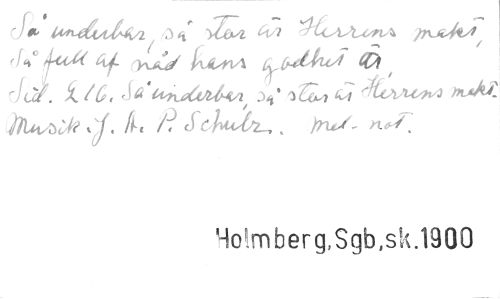 Så underbar, så stor är Herrens makt,
Så full af nåd hans godhet är,
Sid. 216. Så underbar, så stor är Herrens makt.
Musik. J. A. P. Schulz. Mel. not.
Holmberg,Sgb,sk.1900